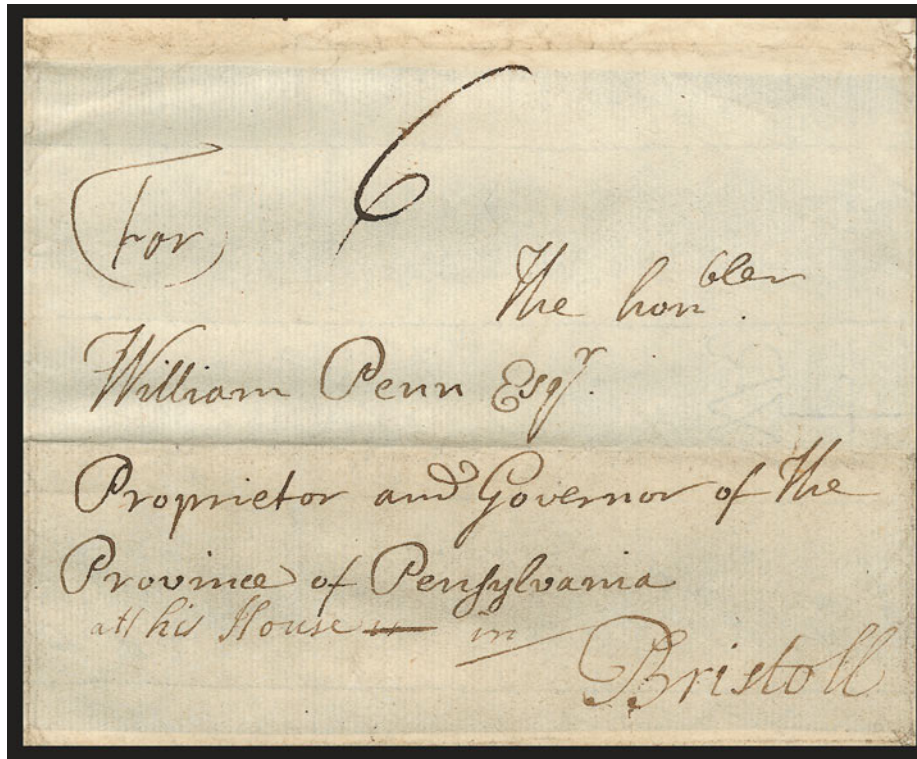 6
For
The hon^bler
William Penn Esq^r.
Proprietor and Governor of The
Province of Pensylvania
att his House in
Bristoll